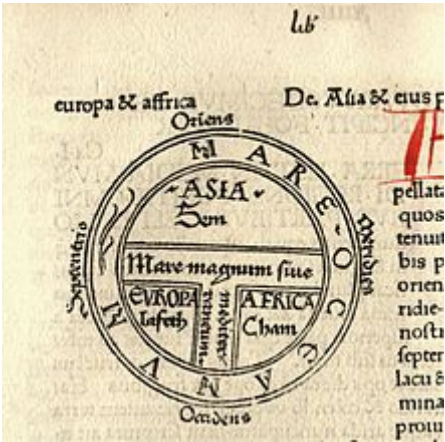 lib
europa & affrica
De. Asia & eius p
Oriens
MARE OCCEANVM
ASIA
Sem
Septentrio
Meridies
Mare magnum siue
mediter
raneum
EVROPA
Iafeth
AFRICA
Cham
Occidens
pellata
quos
tenuit
bis p
orien
ridie-
nostr
septer
lacu &
mina